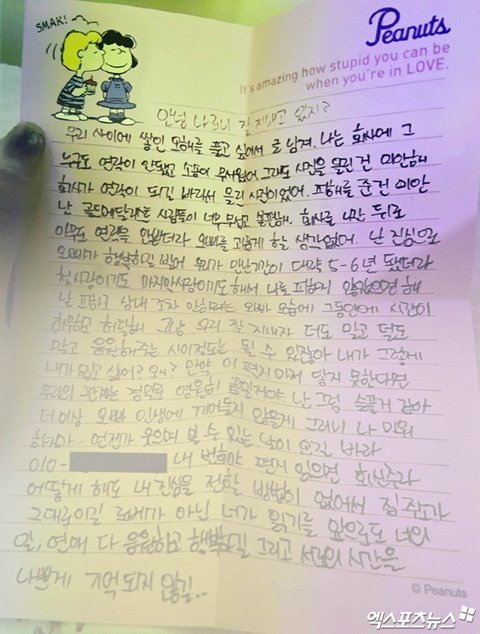 SMAK!
Peanuts
It's amazing how stupid you can be
when you're in LOVE.
안녕 나르니 잘 지내고 있지?
우리 사이에 쌓인 오해를 풀고 싶어서 글 남겨. 나는 회사에 그
누구도 연락이 안됐고 소꿉이 무서웠어. 그래도 사진을 올린 건 미안해
회사가 연락이 되길 바라서 올린 사진이었어. 피해를 준건 미안
난 골드메달리스트 사람들이 너무 무섭고 불편해. 회사를 나간 뒤로
아무도 연락을 안받더라 오빠를 괴롭게 할 생각 없어. 난 진심으로
오빠가 행복하길 빌어 우리가 만난기간이 대략 5-6년 됐더라
첫사랑이기도 마지막사랑이기도 해서 나를 피하진 않았으면 해
난 피하고 상대조차 안하려는 오빠 모습에 그동안에 시간이
허무하고 허탈해 그냥 우리 잘 지내자 더도 말고 덜도
말고 응원해주는 사이정도는 될 수 있잖아 내가 그렇게
내가 밉고 싫어? 왜? 만약 이 편지마저 닿지 못한다면
우리의 관계는 정말로 영원히 끝일거야 난 그럼 슬플거 같아
더이상 오빠 인생에 끼어들지 않을게 그러니 나 미워
하지마.. 언젠가 웃으며 볼 수 있는 날이 오길 바라
010- 내 번호야 편지 읽으면 회신주라
어떻게 해도 내 진심을 전할 방법이 없어서 집주소가
그대로이길 로베가 아닌 너가 읽기를 앞으로도 너의
일, 연애 다 응원하고 행복하길 그리고 서로의 시간을
나쁘게 기억되지 않길..
© Peanuts
엑스포츠뉴스